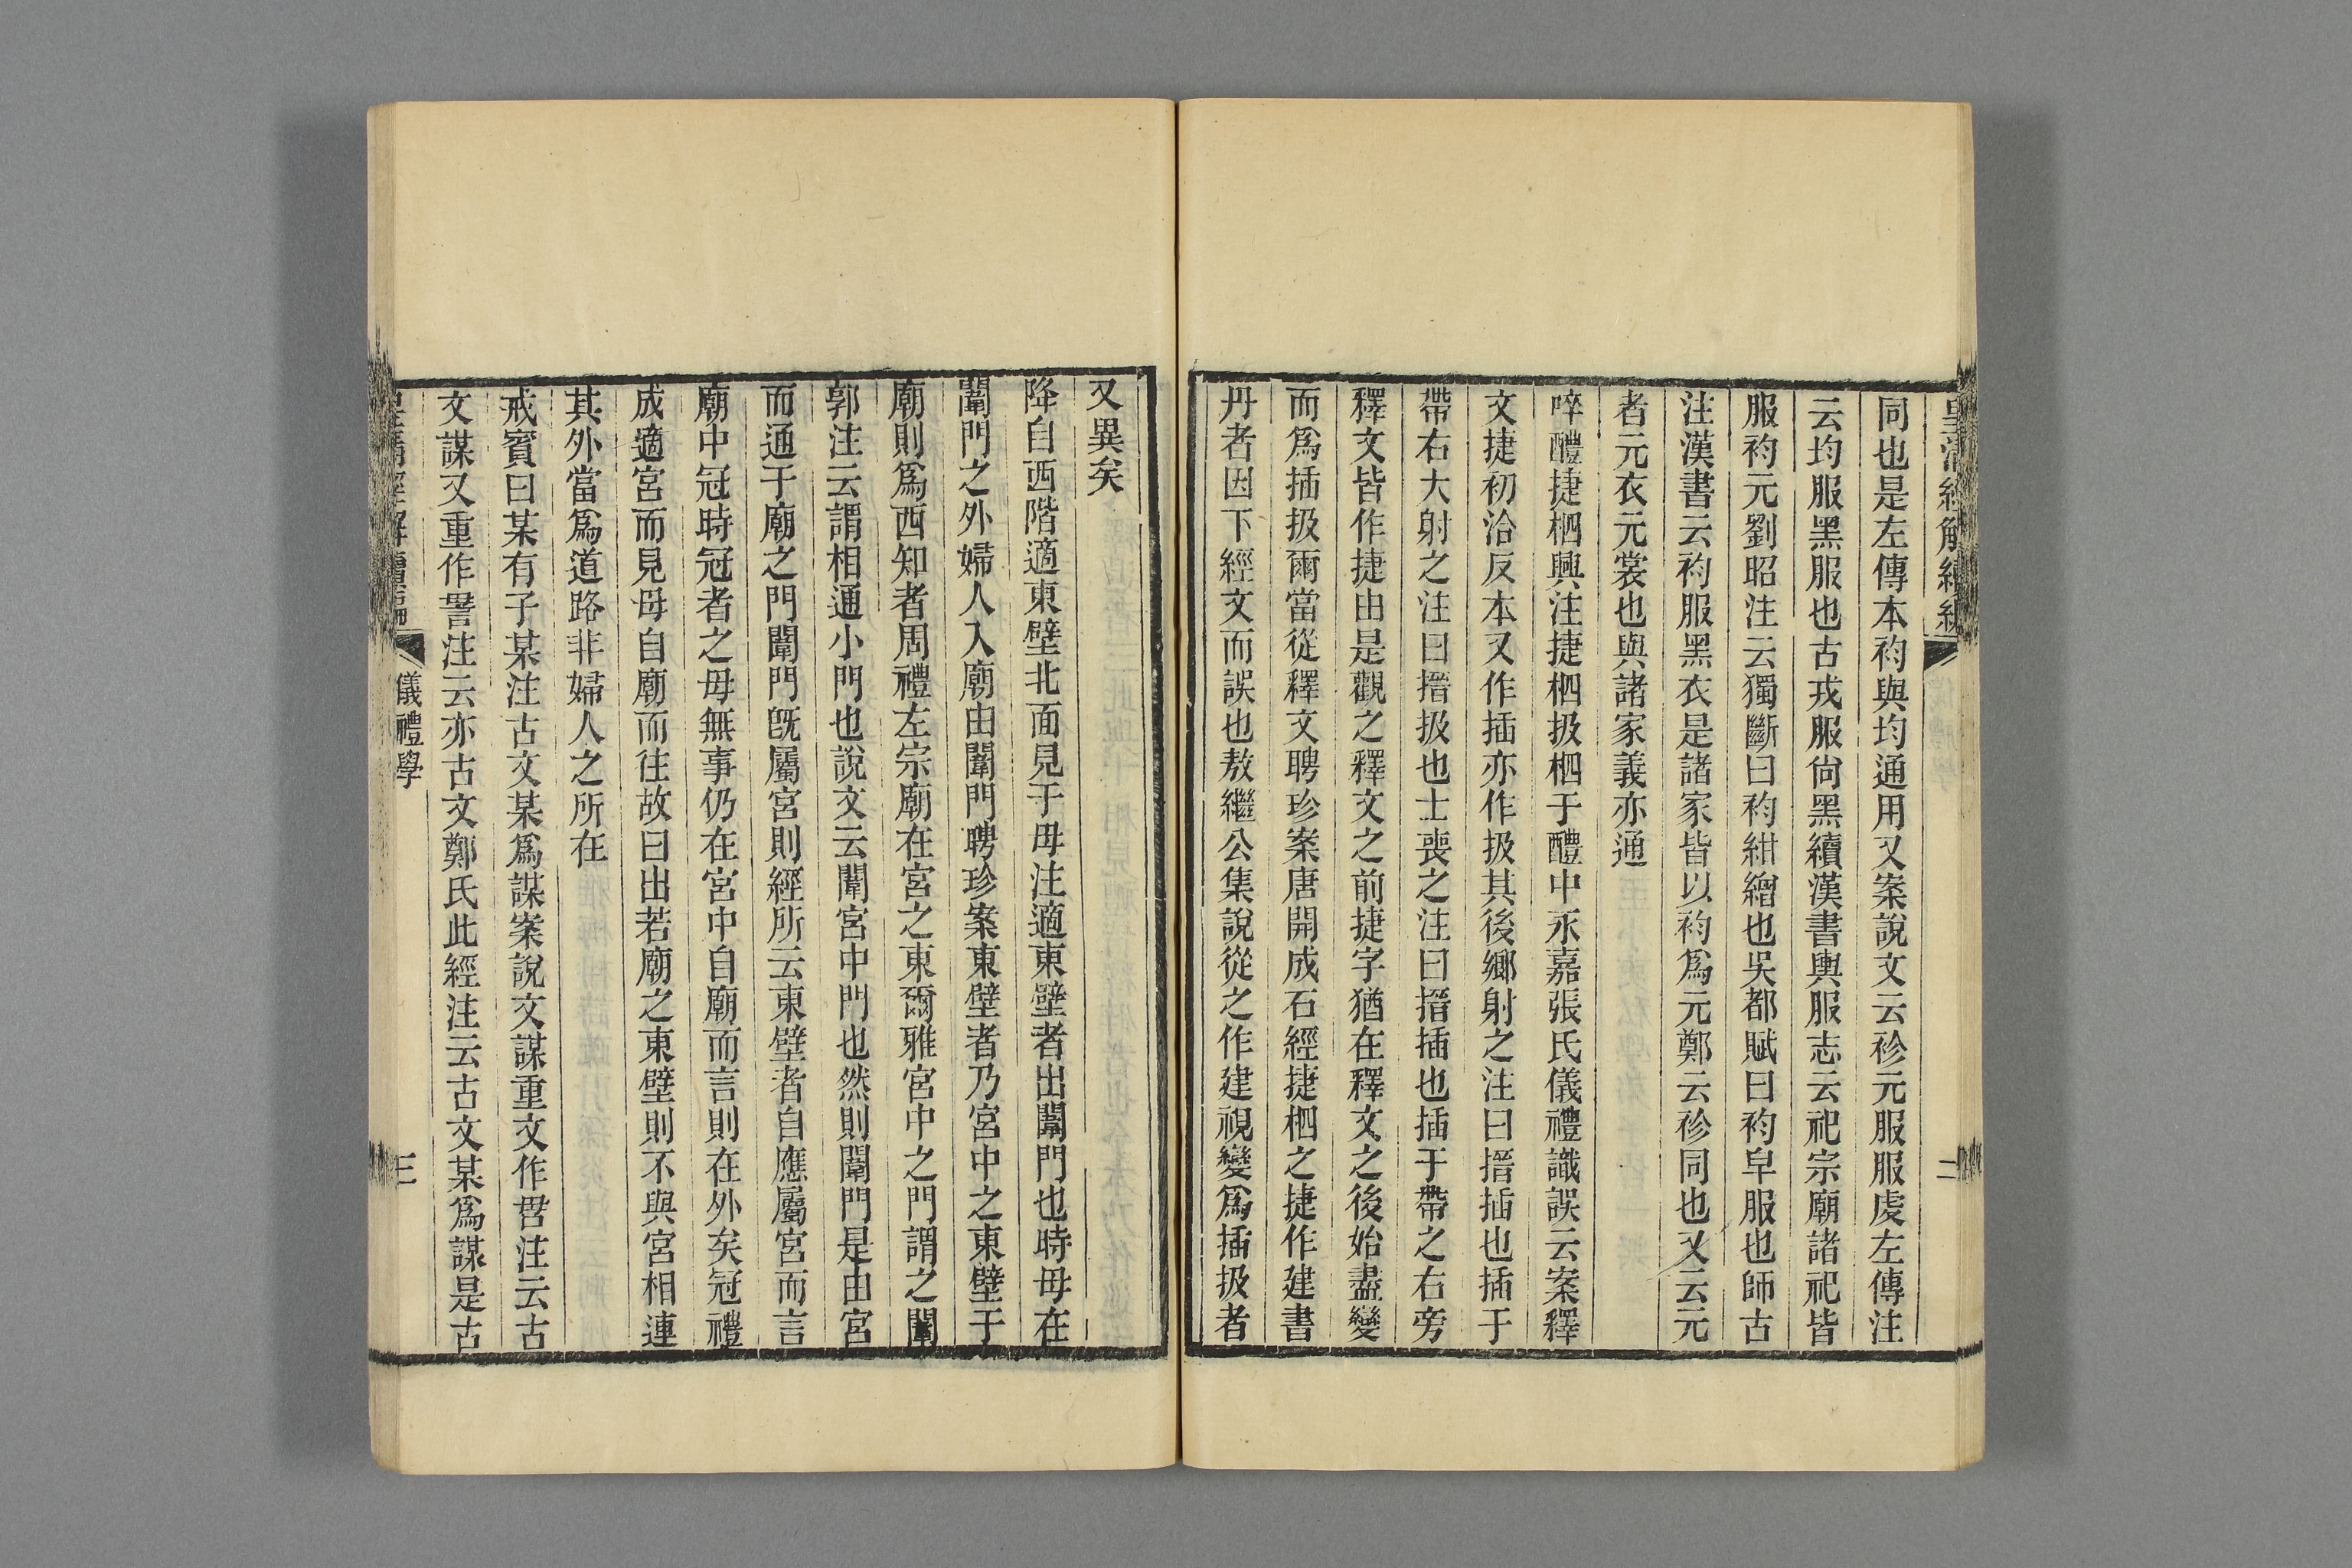 皇清經解續編
二
同也是左傳本袀與均通用又案說文云袗元服服虔左傳注
云均服黑服也古戎服尙黑續漢書輿服志云祀宗廟諸祀皆
服袀元劉昭注云獨斷曰袀紺繒也吳都賦曰袀皁服也師古
注漢書云袀服黑衣是諸家皆以袀爲元鄭云袗同也又云元
者元衣元裳也與諸家義亦通
啐醴捷柶興注捷柶扱柶于醴中永嘉張氏儀禮識誤云案釋
文捷初洽反本又作插亦作扱其後鄉射之注曰搢插也插于
帶右大射之注曰搢扱也士喪之注曰搢插也插于帶之右旁
釋文皆作捷由是觀之釋文之前捷字猶在釋文之後始盡變
而爲插扱爾當從釋文聘珍案唐開成石經捷柶之捷作建書
丹者因下經文而誤也敖繼公集說從之作建視變爲插扱者
又異矣
降自西階適東壁北面見于毋注適東壁者出闈門也時毋在
闈門之外婦人入廟由闈門聘珍案東壁者乃宮中之東壁于
廟則爲西知者周禮左宗廟在宮之東爾雅宮中之門謂之闈
郭注云謂相通小門也說文云闈宮中門也然則闈門是由宮
而通于廟之門闈門旣屬宮則經所云東壁者自應屬宮而言
廟中冠時冠者之毋無事仍在宮中自廟而言則在外矣冠禮
成適宮而見毋自廟而往故曰出若廟之東壁則不與宮相連
其外當爲道路非婦人之所在
戒賓曰某有子某注古文某爲謀案說文謀重文作𠰔注云古
文謀又重作𧦥注云亦古文鄭氏此經注云古文某爲謀是古
皇清經解續編
儀禮學
三